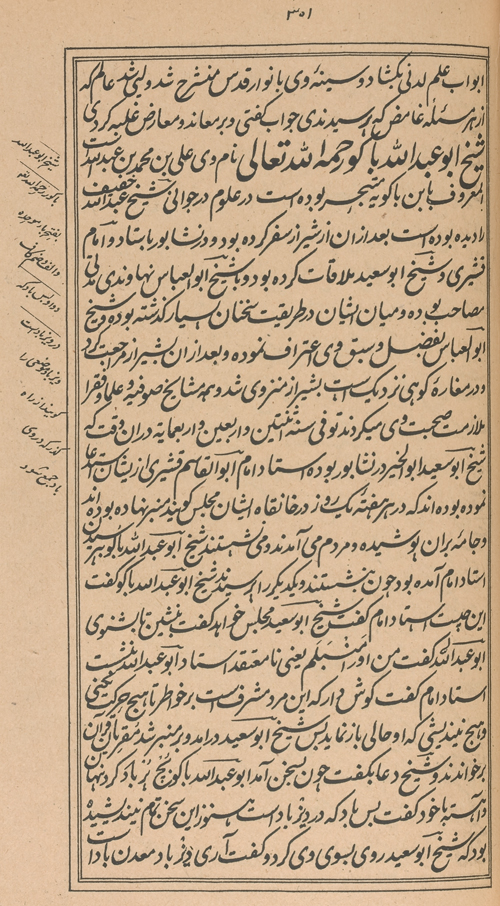 ۳۵۱
ابواب علم لدنی بگشاد و سینهٔ وی بانوار قدس منشرح شد ولی شد عالم که
از هر مسئلهٔ غامض که پرسیدندی جواب گفتی و بر معاند و معارض غلبه کردی
شیخ ابوعبدالله باکو رحمه الله تعالی نام وی علی بن محمد بن عبدالله است
المعروف بابن باکویه متبحر بوده است در علوم در جوانی شیخ عبدالله خفیف
را دیده بوده است بعد ازان از شیراز سفر کرده بود و در نشابور با استاد امام
قشیری و شیخ ابوسعید ملاقات کرده بود و با شیخ ابوالعباس نهاوندی مدتی
مصاحب بوده و میان ایشان در طریقت سخنان بسیار گذشته بوده و شیخ
ابوالعباس بفضل و سبق وی اعتراف نموده و بعد ازان بشیراز مراجعت کرد
و در مغارهٔ کوهی نزدیک است بشیراز منزوی شد و همه مشایخ صوفیه و علما و فقرا
ملازمت صحبت وی میکردند توفی سنه ثنتین و اربعین و اربعمایه دران وقت که
شیخ ابوسعید ابوالخیر در نشابور بوده استاد امام ابوالقاسم قشیری از ایشان استدعا
نموده بوده اند که در هر هفته یک روز در خانقاه ایشان مجلس گویند منبر نهاده بوده اند
و جامه بران پوشیده و مردم می آمدند و می نشستند شیخ ابوعبدالله باکو بپرسیدن
استاد امام آمده بود چون بنشستند و یکدیگر را پرسیدند شیخ ابوعبدالله باکو گفت
این چیست استاد امام گفت شیخ ابوسعید مجلس خواهد گفت بنشین تا بشنوی
ابوعبدالله گفت من او را نمسلم یعنی نامعتقد استاد ابوعبدالله بنشست
استاد امام گفت گوش دار که این مرد مشرف است بر خواطر تا هیچ حرکت نکنی
و هیچ نیندیشی که او حالی باز نماید پس شیخ ابوسعید درامد و بر منبر شد مقریان قرآن
برخواندند و شیخ دعا بگفت چون بسخن آمد ابوعبدالله باکو پچ پر باد کرد پنهان
و آهسته با خود گفت بس باد که در دیز باد است هنوز این سخن تمام نیندیشیده
بود که شیخ ابوسعید روی بسوی وی کرد و گفت آری دیز باد معدن باد است
شیخ ابوعبدالله
باکو رحمه الله تعالی